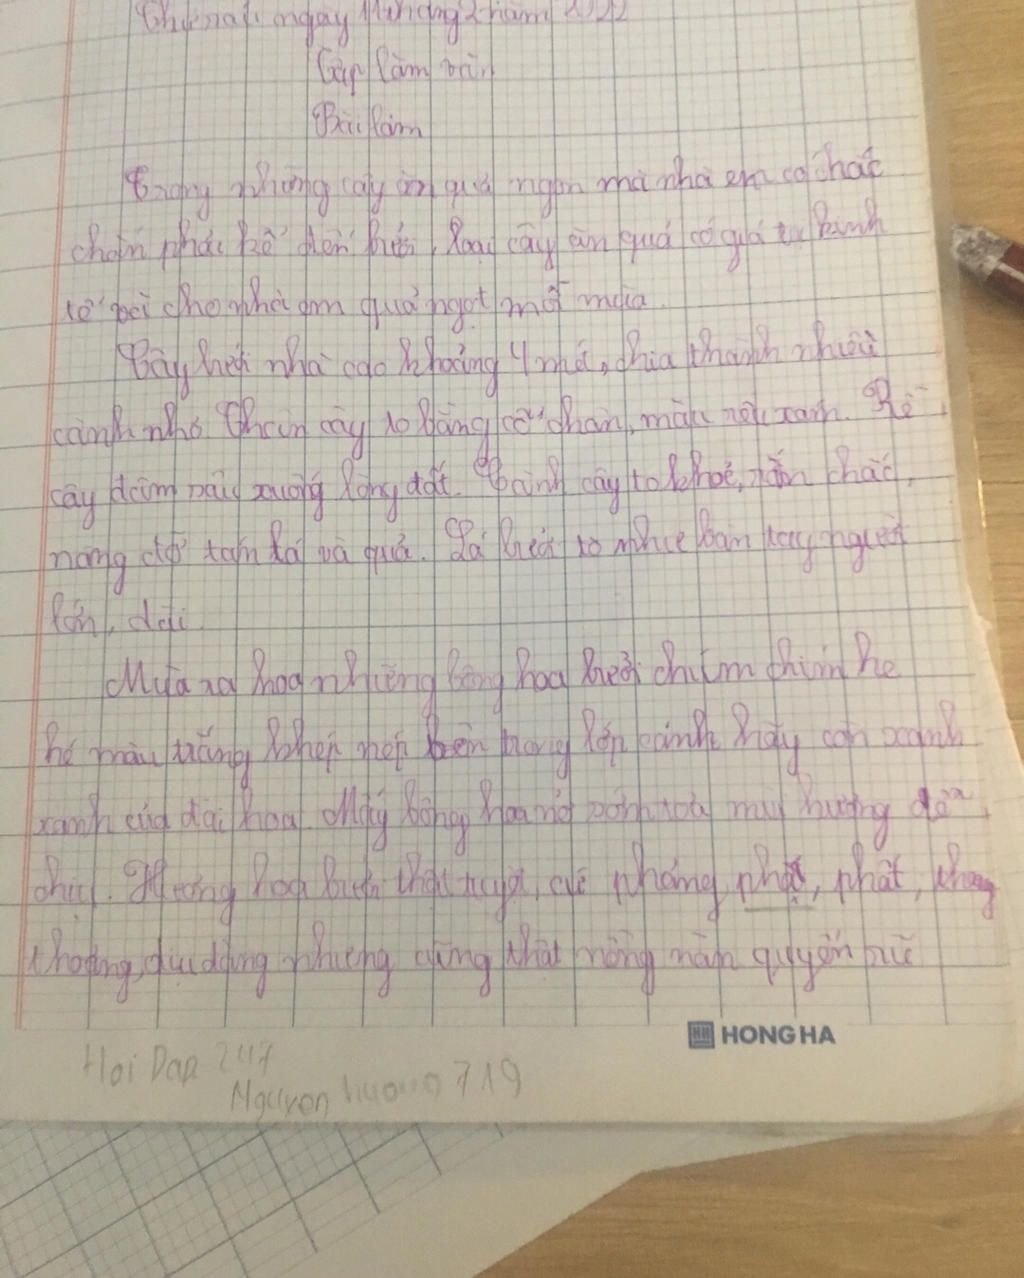 Thứ hai, ngày tháng 2 năm 2022
Tập làm văn
Bài làm
Trong những cây ăn quả ngon mà nhà em có chắc
chắn phải kể đến bưởi, loại cây ăn quả có giá trị kinh
tế vài cho nhà em quả ngọt mỗi mùa.
Cây bưởi nhà cao khoảng 4 mét, chia thành nhiều
cành nhỏ. Thân cây to bằng cổ chân, màu nâu xanh. Rễ
cây đâm sâu xuống lòng đất. Cành cây to khoẻ, rắn chắc,
nâng đỡ tán lá và quả. Lá bưởi to như bàn tay người
lớn, dài.
Mùa ra hoa những bông hoa bưởi chúm chím he
hé màu trắng khép nép bên trong lớp cánh hãy còn xanh
xanh của đài hoa. Mấy bông hoa nở sớm toả mùi hương dễ
chịu. Hương hoa bưởi thật tuyệt, cứ phảng phất, phất, thoang
thoảng, dịu dàng nhưng cũng thật nồng nàn quyến rũ
HH HONG HA
Hoi Dap 247
Nguyen huong 719